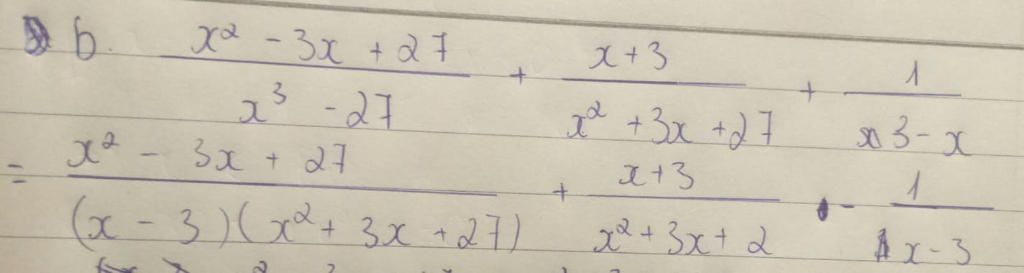 b. (x² - 3x + 27)/(x³ - 27) + (x+3)/(x² + 3x + 27) + 1/(3 - x)
= (x² - 3x + 27)/((x - 3)(x² + 3x + 27)) + (x+3)/(x² + 3x + 2) - 1/(x - 3)